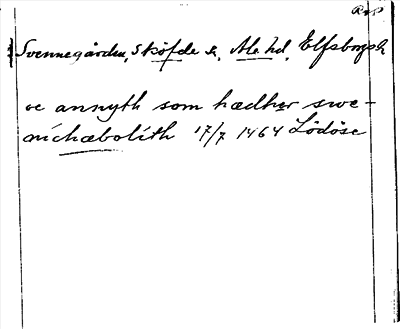 RAP
Svennegården, Sköfde s., Ale hd, Elfsborgs l.
oc annyth som hædher swe-
nichæbolith 17/7 1464 Lödöse